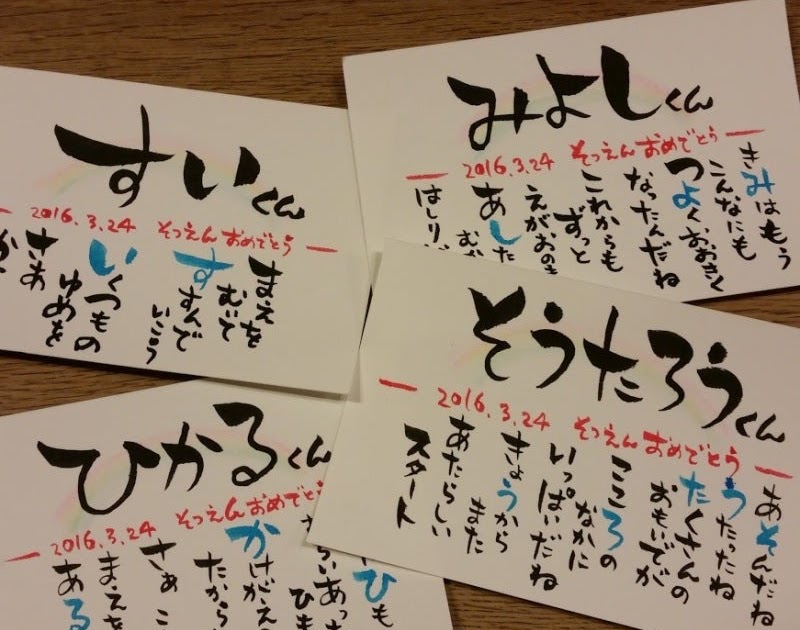 すいくん
2016.3.24 そつえん おめでとう
まえを
むいて
すすんで
いこう
いくつもの
ゆめを
さあ
みよしくん
2016.3.24 そつえん おめでとう
きみはもう
こんなにも
つよくおおきく
なったんだね
これからも
ずっと
えがおの
あした
そうたろうくん
2016.3.24 そつえん おめでとう
あそんだね
うたったね
たくさんの
おもいでが
こころの
なかに
いっぱいだね
きょうから
また
あたらしい
スタート
ひかるくん
2016.3.24 そつえん おめでとう
ひも
かけがえ
たから
さあ
まえを
ある